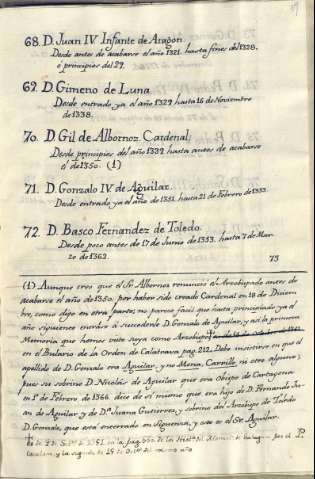 68. D. Juan IV Infante de Aragon.
Desde antes de acabarse el año 1321. hasta fines del 1328.
o principios del 29.
69. D. Gimeno de Luna
Desde entrado ya el año 1329 hasta 16 de Noviembre
de 1338.
70. D. Gil de Albornoz. Cardenal
Desde principios del año 1339 hasta antes de acabarse
el de 1350. (1)
71. D. Gonzalo IV de Aguilar.
Desde entrado ya el año de 1351 hasta 21 de Febrero de 1353.
72. D. Basco Fernandez de Toledo.
Desde poco antes de 17 de Junio de 1353. hasta 7 de Mar-
zo de 1362.
73
(1) Aunque creo que el Sr. Albornoz renunció el Arzobispado antes de
acabarse el año de 1350. por haber sido creado Cardenal en 18 de Diciem-
bre, como digo en otra parte; no parece facil que hasta principiado ya el
año siguiente entrase á sucederle D. Gonzalo de Aguilar, y así la primera
Memoria que hemos visto suya como Arzobispo
en el Bulario de la Orden de Calatrava pag. 212. Debo insistir en que el
apellido de D. Gonzalo era Aguilar, y no Mena, Carrillo, ni otro alguno;
pues su sobrino D. Nicolás de Aguilar que era Obispo de Cartagena
en 1º de Febrero de 1366. dice de sí mismo que era hijo de D. Fernando Ju-
an de Aguilar y de Dª Juana Gutierrez, y sobrino del Arzobispo de Toledo
D. Gonzalo, que está enterrado en Siguenza, y este es el Sr. Aguilar.